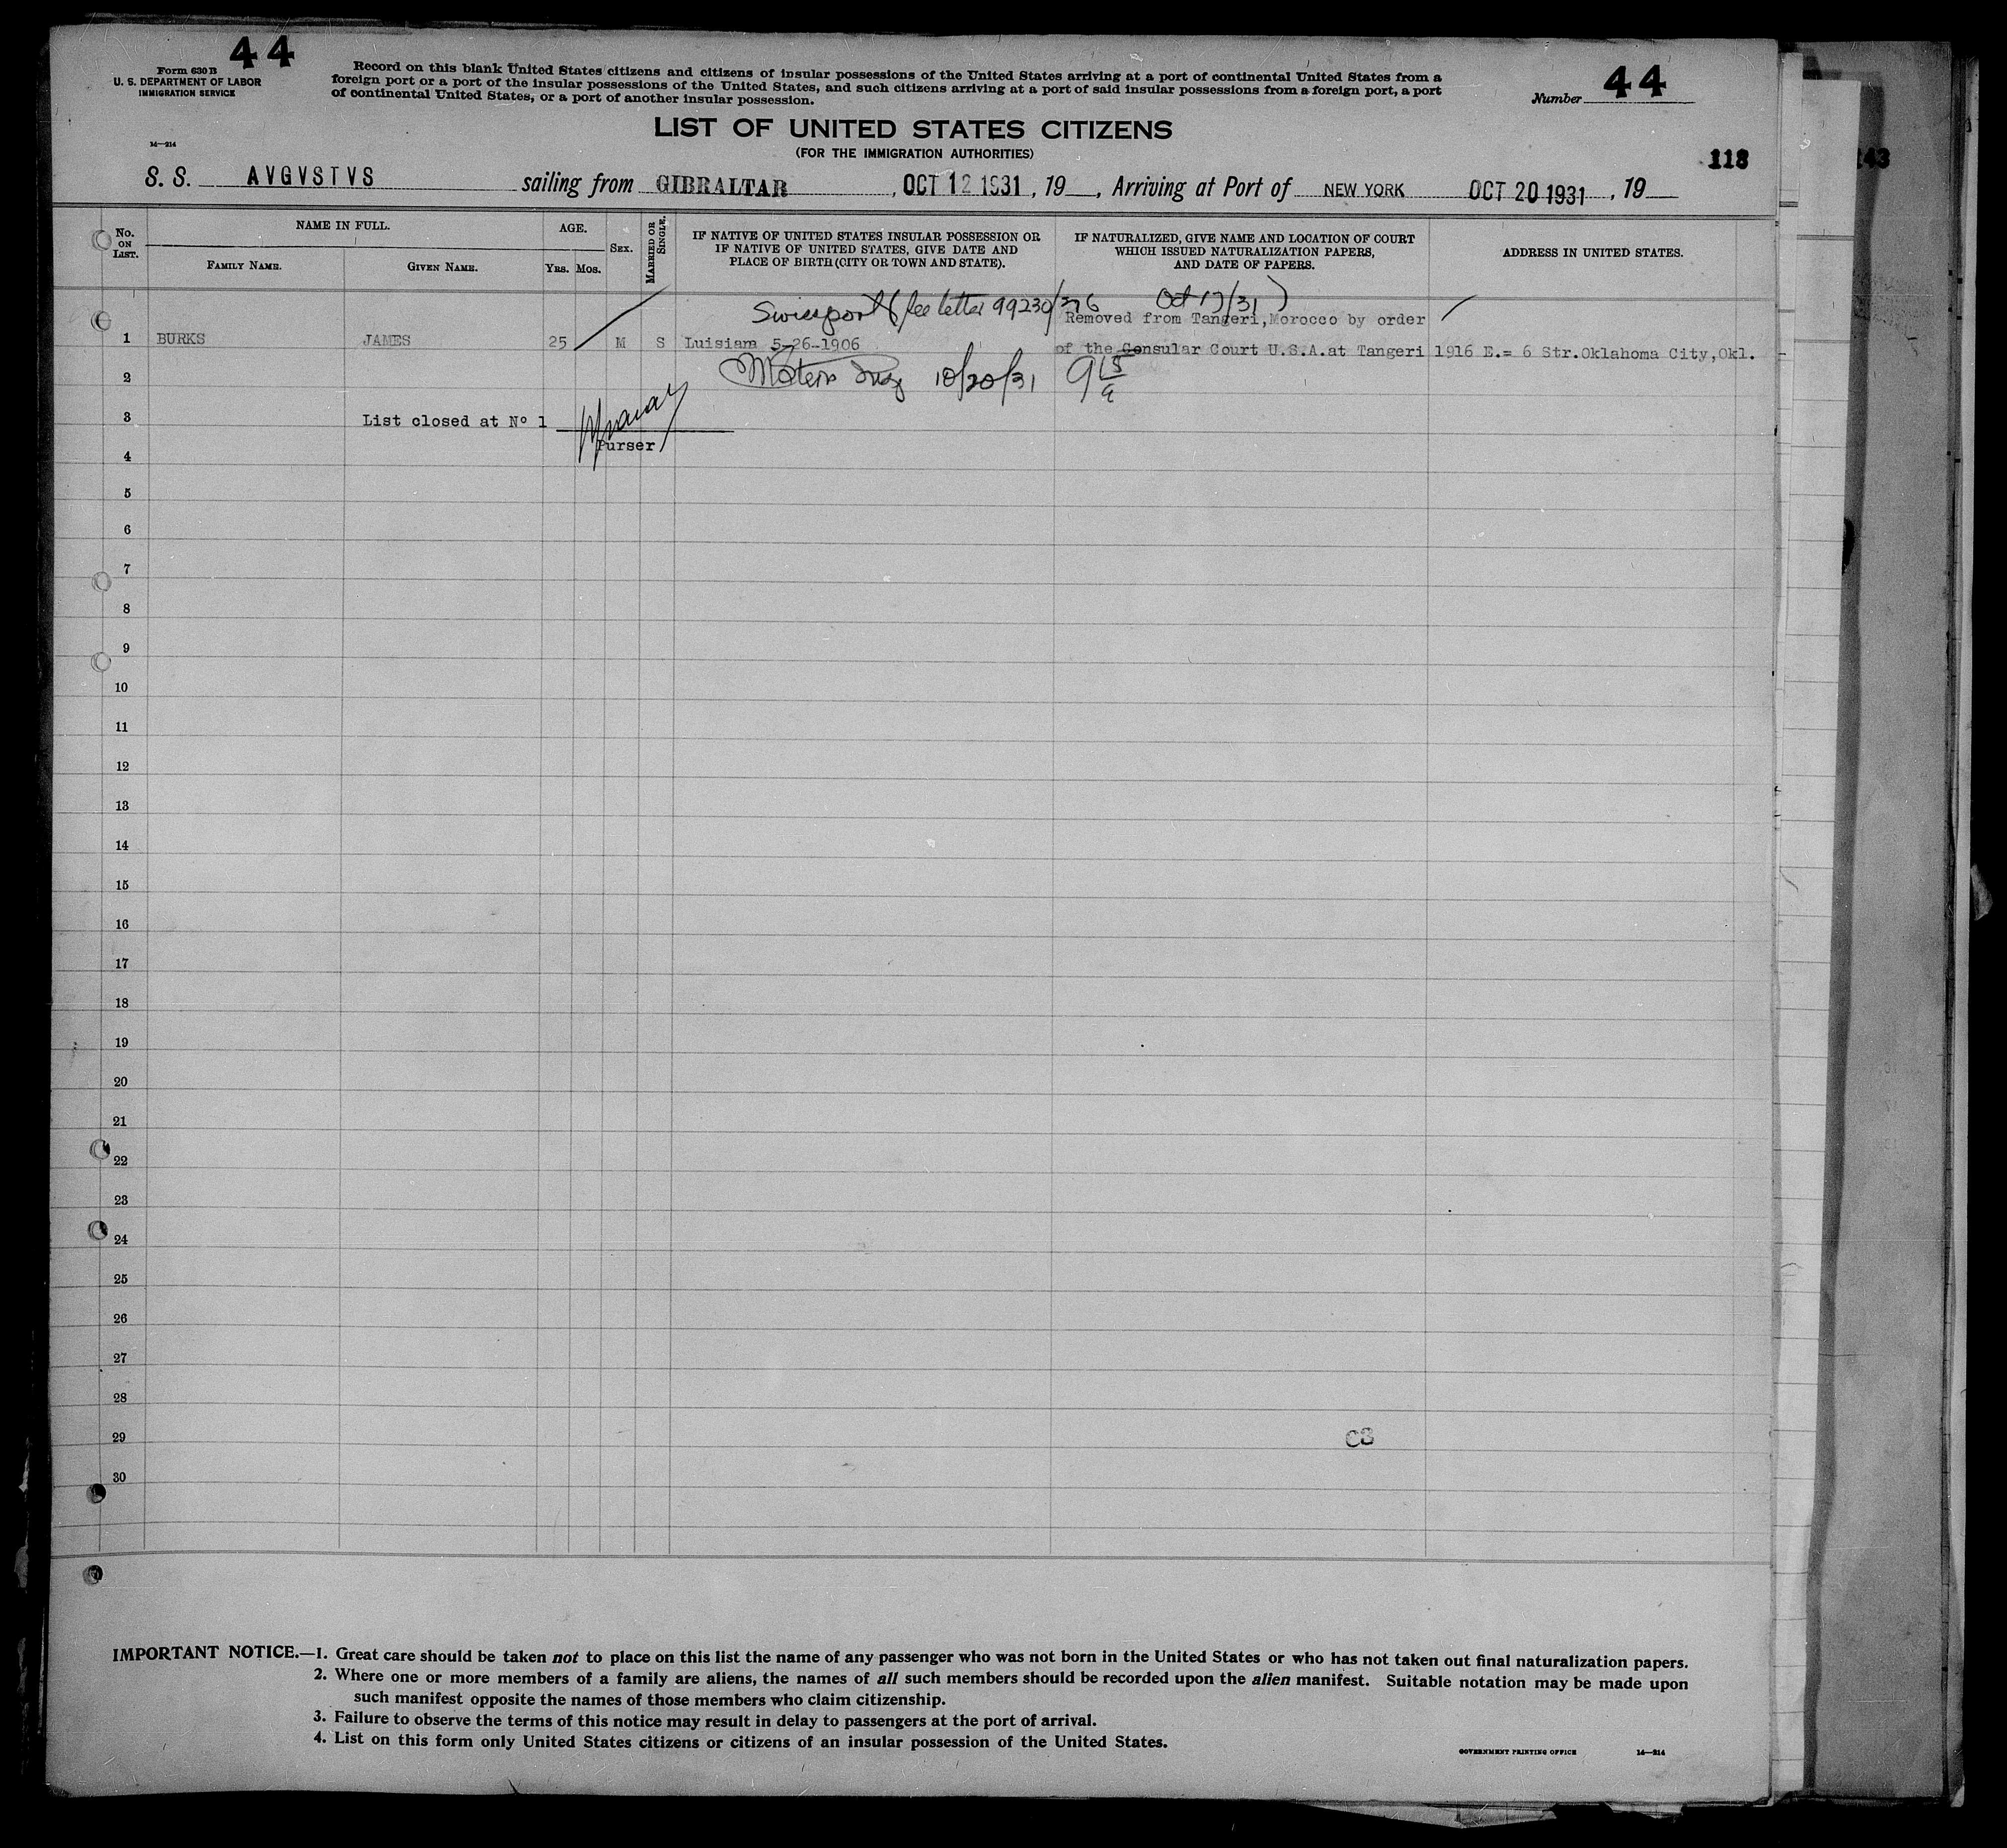 44
Form 630 B
U. S. DEPARTMENT OF LABOR
IMMIGRATION SERVICE
14—214
Record on this blank United States citizens and citizens of insular possessions of the United States arriving at a port of continental United States from a
foreign port or a port of the insular possessions of the United States, and such citizens arriving at a port of said insular possessions from a foreign port, a port
of continental United States, or a port of another insular possession.
Number 44
LIST OF UNITED STATES CITIZENS
(FOR THE IMMIGRATION AUTHORITIES)
118
143
S. S. AVGVSTVS sailing from GIBRALTAR, OCT 12 1931, 19 , Arriving at Port of NEW YORK OCT 20 1931, 19
No. ON LIST.
NAME IN FULL.
FAMILY NAME.
GIVEN NAME.
AGE.
YRS. MOS.
SEX.
MARRIED OR SINGLE.
IF NATIVE OF UNITED STATES INSULAR POSSESSION OR
IF NATIVE OF UNITED STATES, GIVE DATE AND
PLACE OF BIRTH (CITY OR TOWN AND STATE).
IF NATURALIZED, GIVE NAME AND LOCATION OF COURT
WHICH ISSUED NATURALIZATION PAPERS,
AND DATE OF PAPERS.
ADDRESS IN UNITED STATES.
(see letter 99230/376 Oct 17/31)
Removed from Tangeri, Morocco by order
1 BURKS JAMES 25 M S Luisiam 5-26-1906 of the Consular Court U.S.A. at Tangeri 1916 E.= 6 Str. Oklahoma City, Okl.
2 10/20/31 9 15
3 List closed at Nº 1
Purser
4
5
6
7
8
9
10
11
12
13
14
15
16
17
18
19
20
21
22
23
24
25
26
27
28
29
30
IMPORTANT NOTICE.—1. Great care should be taken not to place on this list the name of any passenger who was not born in the United States or who has not taken out final naturalization papers.
2. Where one or more members of a family are aliens, the names of all such members should be recorded upon the alien manifest. Suitable notation may be made upon
such manifest opposite the names of those members who claim citizenship.
3. Failure to observe the terms of this notice may result in delay to passengers at the port of arrival.
4. List on this form only United States citizens or citizens of an insular possession of the United States.
GOVERNMENT PRINTING OFFICE 14—214